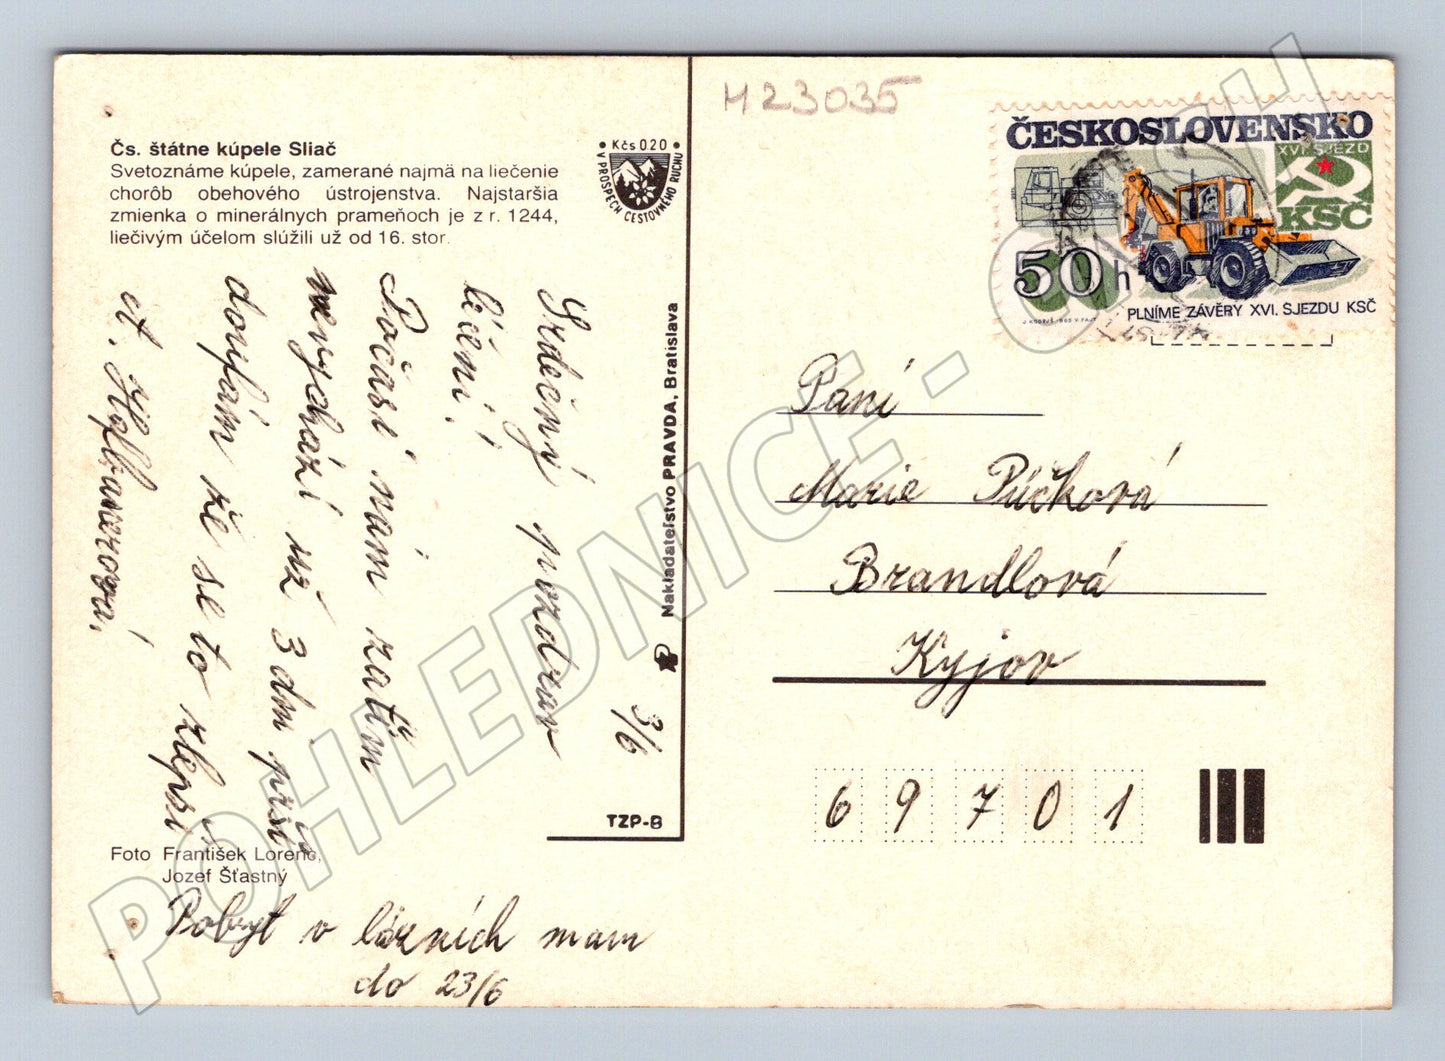 Čs. štátne kúpele Sliač
Svetoznáme kúpele, zamerané najmä na liečenie
chorôb obehového ústrojenstva. Najstaršia
zmienka o minerálnych prameňoch je z r. 1244,
liečivým účelom slúžili už od 16. stor.
Kčs 0,20
V PROSPECH CESTOVNÉHO RUCHU
3/6
Srdečný pozdrav
léčení!
Počasí nám zatím
nevychází už 3 dni prší
doufám že se to zlepší
Nakladateľstvo PRAVDA, Bratislava
TZP-B
Foto František Lorenc,
Jozef Šťastný
Pobyt v lázních mam
do 23/6
M23035
ČESKOSLOVENSKO
XVI. SJEZD
KSČ
50 h
PLNÍME ZÁVĚRY XVI. SJEZDU KSČ
Paní
Marie Púčková
Brandlová
Kyjov
69701
POHLEDNICE - CASH